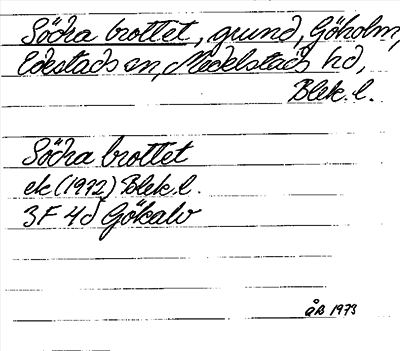 Södra brottet, grund, Göholm,
Edestads sn, Medelstads hd,
Blek. l.
Södra brottet
ek (1972) Blek. l.
3F 4d Gökalv
ÅB 1973